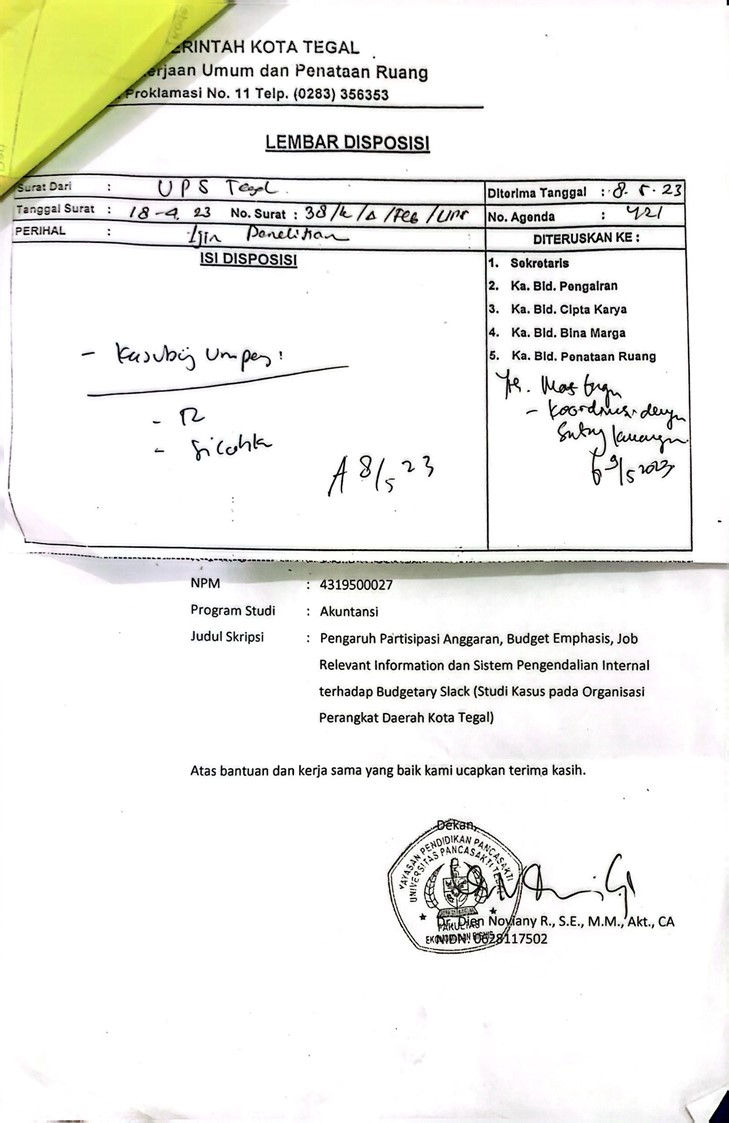 ERINTAH KOTA TEGAL
erjaan Umum dan Penataan Ruang
Proklamasi No. 11 Telp. (0283) 356353
LEMBAR DISPOSISI
Surat Dari : UPS Tegal.
Diterima Tanggal : 8.5.23
Tanggal Surat : 18-4.23 No. Surat : 38/K/A/FEB/UPS
No. Agenda : 421
PERIHAL : Ijin Penelitian
DITERUSKAN KE :
ISI DISPOSISI
1. Sekretaris
2. Ka. Bid. Pengairan
3. Ka. Bid. Cipta Karya
4. Ka. Bid. Bina Marga
5. Ka. Bid. Penataan Ruang
- Kasubig Umpeg :
8/5 23
- Koordinasi dengan
9/5 2023
NPM : 4319500027
Program Studi : Akuntansi
Judul Skripsi : Pengaruh Partisipasi Anggaran, Budget Emphasis, Job
Relevant Information dan Sistem Pengendalian Internal
terhadap Budgetary Slack (Studi Kasus pada Organisasi
Perangkat Daerah Kota Tegal)
Atas bantuan dan kerja sama yang baik kami ucapkan terima kasih.
Dekan,
YAYASAN PENDIDIKAN PANCASAKTI
UNIVERSITAS PANCASAKTI TEGAL
FAKULTAS
EKONOMI DAN BISNIS
Dr. Dien Noviany R., S.E., M.M., Akt., CA
NIDN. 0628117502